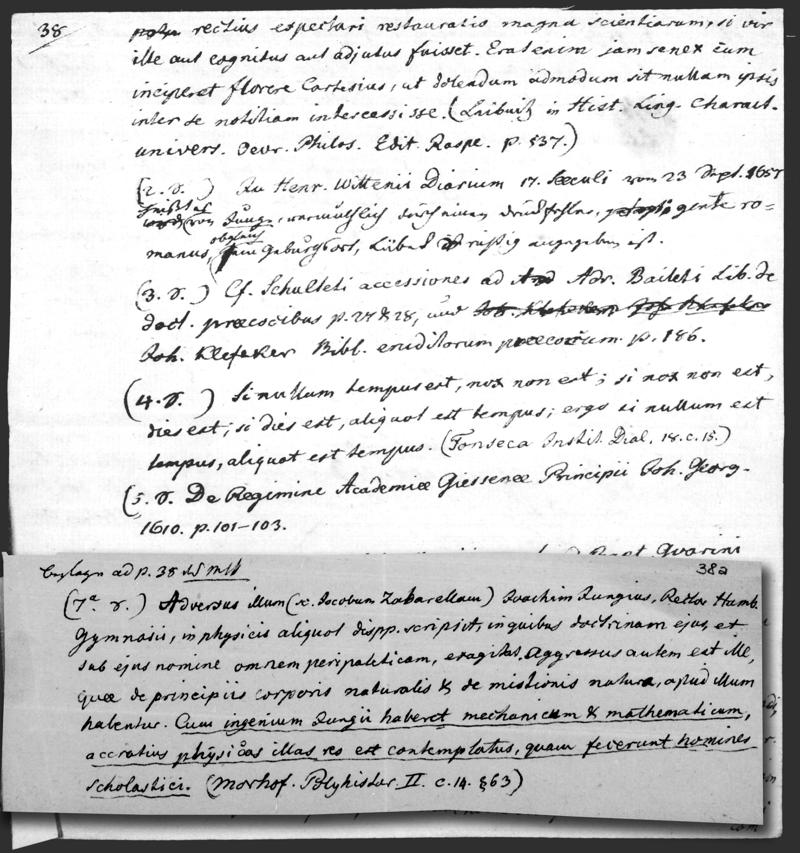 38
rectius expectari restauratio magna scientiarum, si vir
ille aut cognitus aut adjutus fuisset. Erat enim jam senex cum
inciperet florere Cartesius, ut dolendum admodum sit nullam ipsis
inter se notitiam intercessisse. (Leibnitz in Hist. Ling. Charact.
univers. Oeuv. Philos. Edit. Raspe. p. 537.)
(2. v. ) In Henr. Wittenii Diarium 17. Sæculi vom 23 Sept. 1657
heißt er (von Jungs, vermuthlich durch einen Druckfehler, gente ro-
obgleich
manus, sein Geburtsort, Lübeck richtig angegeben ist.
(3. v. ) Cf. Schulteti accessiones ad Adr. Bailleti Lib. de
doct. præcocibus p. 27 & 28, und
Joh. Klefeker Bibl. eruditorum præcocium. p. 186.
(4. v. ) Si nullum tempus est, nox non est; si nox non est,
dies est; si dies est, aliquot est tempus; ergo si nullum est
tempus, aliquot est tempus. (Fonseca Instit. Dial. 18. c. 15.)
(5. v. De Regimine Academiæ Giessenæ Principii Joh. Georg.
1610. p. 101-103.
Guarini
Beylage ad p. 38 des Mss
38a
(7a. v. ) Adversus illum (sc. Jacobum Zabarellam) Joachim Jungius, Rector Hamb.
Gymnasii, in physicis aliquot dispp. scripsit, in quibus doctrinam ejus, et
sub ejus nomine omnem peripateticam, exagitat. Aggressus autem est ille,
quæ de principiis corporis naturalis & de mistionis natura, apud illum
habentur. Cum ingenium Jungii haberet mechanicum & mathematicum,
accratius physicas illas res est contemplatus, quam feverunt homines
scholastici. (Morhof. Polyhistor. II. c. 14. §63)